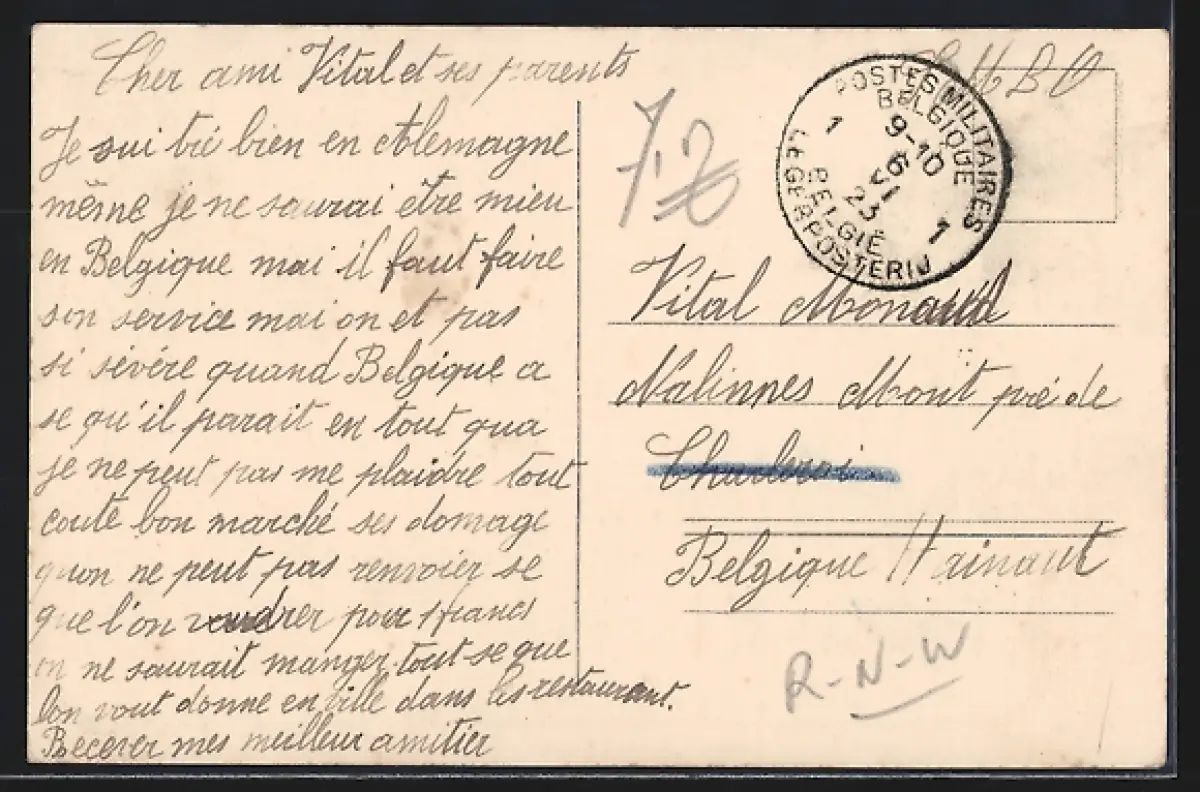 Cher ami Vital et ses parents
Je sui tré bien en Alemagne
même je ne saurai être mieu
en Belgique mai il faut faire
son service mai on et pas
si sévére quand Belgique a
se qu'il parait en tout qua
je ne peut pas me plaidre tout
coute bon marché ses domage
quon ne peut pas renvoier se
que l'on voudrer pour 1 francs
on ne saurait manger tout se que
lon vout donne en ville dans les restaurant.
Becerer mes meilleur amitier
7.20
POSTES MILITAIRES
BELGIQUE
1 9-10 1
6 VI
23
BELGIË
LEGERPOSTERIJ
Vital
Nalinnes Mont pré de
Charleroi
Belgique Hainaut
R-N-W